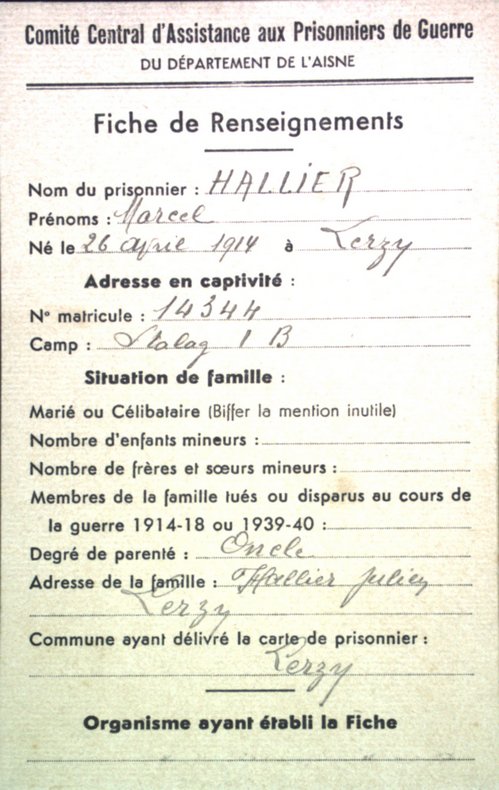 Comité Central d'Assistance aux Prisonniers de Guerre
DU DÉPARTEMENT DE L'AISNE
Fiche de Renseignements
Nom du prisonnier : HALLIER
Prénoms : Marcel
Né le 26 avril 1914 à Lerzy
Adresse en captivité :
N° matricule : 14344
Camp : Stalag I B
Situation de famille :
Marié ou Célibataire (Biffer la mention inutile)
Nombre d'enfants mineurs :
Nombre de frères et sœurs mineurs :
Membres de la famille tués ou disparus au cours de
la guerre 1914-18 ou 1939-40 :
Degré de parenté : Oncle
Adresse de la famille : Hallier Julien
Lerzy
Commune ayant délivré la carte de prisonnier :
Lerzy
Organisme ayant établi la Fiche